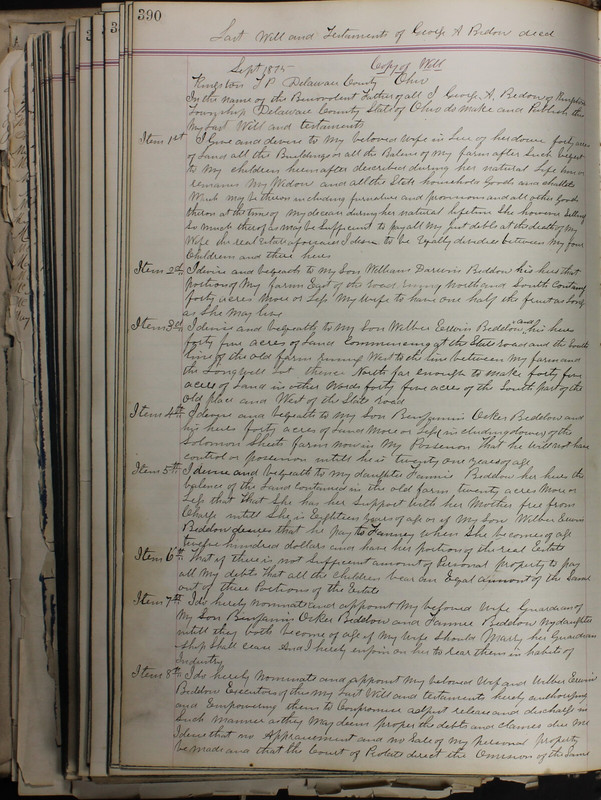 390
Last Will and Testaments of George A Bedow decd
Sept 1875 Copy of Will
Kingston T P Delaware County Ohio
In the name of the Benevolent Father of all I George A. Bedow of Kingston
Township Delaware County State of Ohio do make and Publish this
My Last Will and testaments
Item 1st I Give and devise to My beloved wife in Lieu of her dower forty acres
of Land all the Buildings on all the Balance of My farm after Such bequest
to My Children hereinafter described during her natural Life time or
remains My Widow and all the State household Goods and chattels
Which may be theron including furniture and provisions and all other Good
theron at the time of my decease during her natural lifetime She however Selling
So much therof as may be Sufficient to pay all My Just debts at the death of My
Wife the real Estate aforesaid I desire to be Equally divided between my four
Children and their heirs
Item 2d I devise and bequeath to My Son William Darwin Beddow his heirs that
portion of My farm East of the road runing North and South Containg
forty acres More or Less My Wife to have one half the fruit as long
as She May live
Item 3d I devise and bequeath to my Son Wilber Erwin Beddow and his heirs
forty five acres of Land Commencing at the State road and the South
line of the old farm runing West to the line between My farm and
the Longwell lot thence North far enough to make forty five
acres of Land in other Words forty five acres of the South part of the
old place and West of the State road
Item 4th I devise and bequeath to My Son Benjamin Osker Beddow and
his heirs forty acres of Land More or Less including of the
Solomon Sheets farm now in My Possession That he will not have
control or possession untill he is twenty one years of age
Item 5th I devise and bequeath to my daughter Fannie Beddow her heirs the
balance of the Land Contained in the old farm twenty acres More or
Less that that She has her Support with her Mother free from
Charge untill She is Eighteen years of age or if My Son Wilber Erwin
Beddow desires that he pay to Fanney when She becomes of age
twelve hundred dollars and have her portion of the real Estate
Item 6th That if there is not Sufficient amount of Personal property to pay
all My debts That all the Children bear an Equal amount of the Same
out of these Portions of the Estate
Item 7th I do hereby nominate and appoint My beloved Wife Guardian of
My Son Benjamin Osker Beddow and Fannie Beddow My daughter
untill they both become of age if my Wife Should Marry her Guardian
ship Shall cease And I hereby enjoin on her to rear them in habits of
Industry
Item 8th I do hereby Nominate and appoint My beloved Wife and Wilber Erwin
Beddow Executors of this My Last Will and testaments hereby authorizing
and Empowering them to Compromise adjust release and discharge in
Such Manner as they May deem proper the debts and claimes due Me
I desire that no Appraisement and no Sale of My personal property
be made and that the Court of Probate direct the Omission of the Same